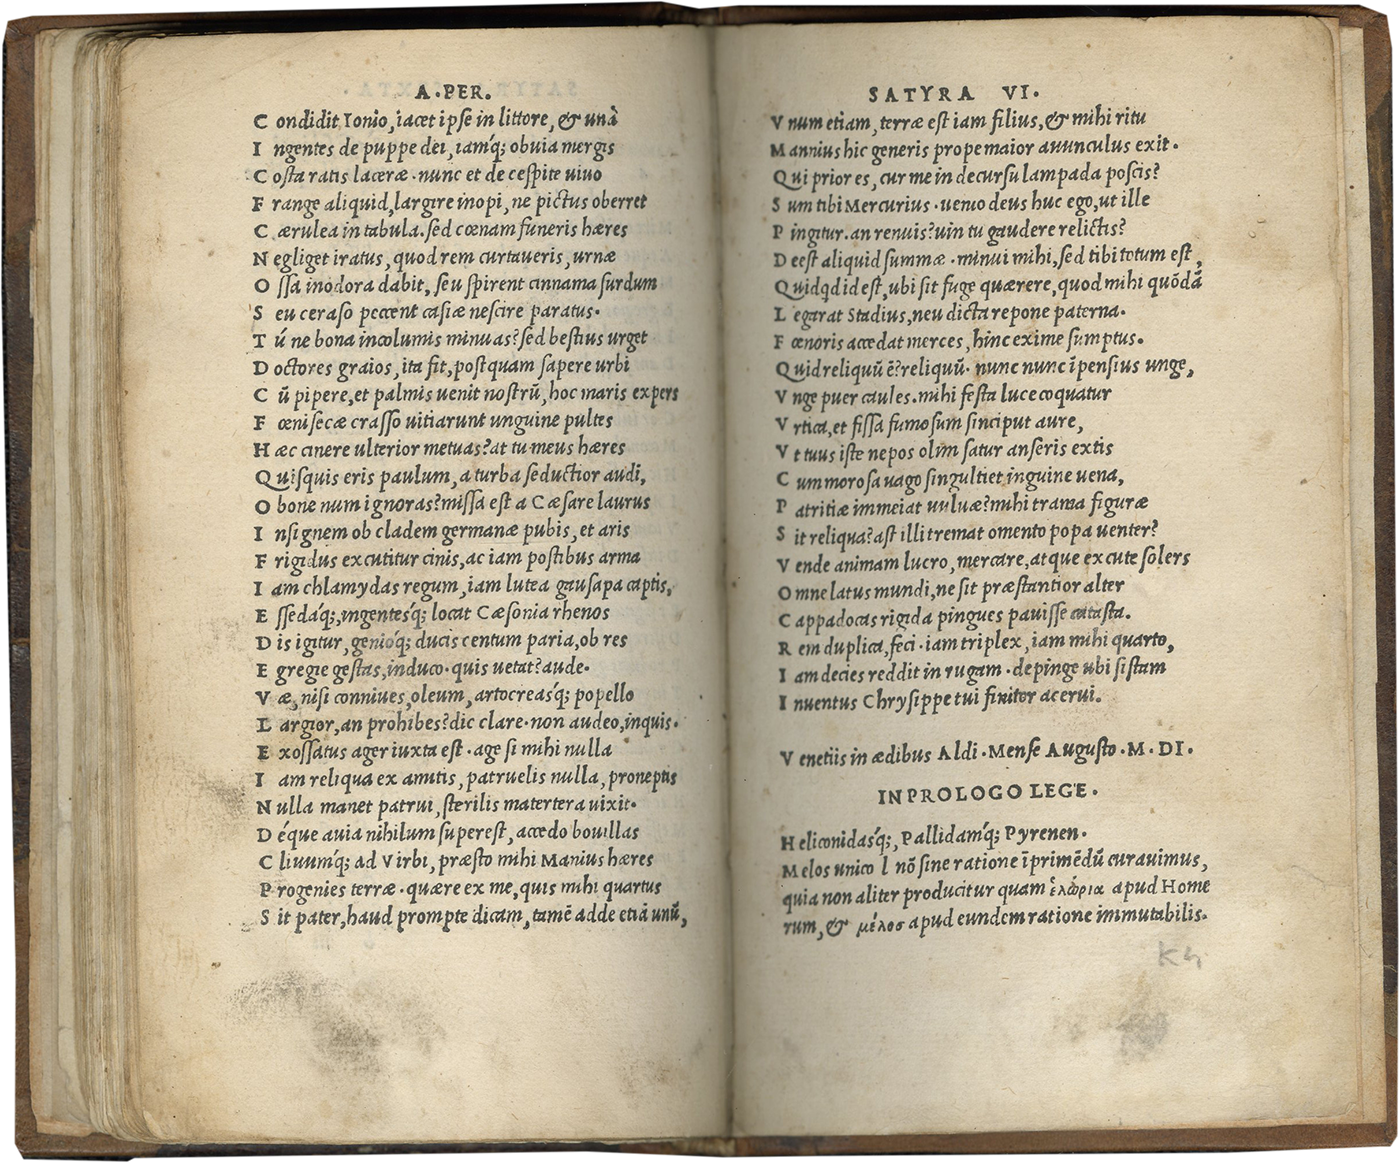 A.PER.
C ondidit Ionio, iacet ipse in littore, & unà
I ngentes de puppe dei, iamq́; obuia mergis
C osta ratis laceræ. nunc et de cespite uiuo
F range aliquid, largire inopi, ne pictus oberret
C ærulea in tabula. sed cœnam funeris hæres
N egliget iratus, quod rem curtaueris, urnæ
O ssa inodora dabit, seu spirent cinnama surdum
S eu ceraso peccent casiæ nescire paratus.
T ú ne bona incolumis minuas? sed bestius urget
D octores graios, ita fit, postquam sapere urbi
C ũ pipere, et palmis uenit nostrũ, hoc maris expers
F œnisecæ crasso uitiarunt unguine pultes
H æc cinere ulterior metuas? at tu meus hæres
Q uisquis eris paulum, a turba seductior audi,
O bone num ignoras? missa est a Cæsare laurus
I nsignem ob cladem germanæ pubis, et aris
F rigidus excutitur cinis, ac iam postibus arma
I am chlamydas regum, iam lutea gausapa captis,
E ssedaq́;, ingentesq́; locat Cæsonia rhenos
D is igitur, genioq́; ducis centum paria, ob res
E gregie gestas, induco. quis uetat? aude.
V æ, nisi conniues, oleum, artocreasq́; popello
L argior, an prohibes? dic clare. non audeo, inquis.
E xossatus ager iuxta est. age si mihi nulla
I am reliqua ex amitis, patruelis nulla, proneptis
N ulla manet patrui, sterilis matertera uixit.
D éque auia nihilum superest, accedo bouillas
C liuumq́; ad Virbi, præsto mihi Manius hæres
P rogenies terræ. quære ex me, quis mihi quartus
S it pater, haud prompte dicam, tamẽ adde etiã unũ,
SATYRA VI.
V num etiam, terræ est iam filius, & mihi ritu
M annius hic generis prope maior auunculus exit.
Q ui prior es, cur me in decursu lampada poscis?
S um tibi Mercurius. uenio deus huc ego, ut ille
P ingitur. an renuis? uin tu gaudere relictis?
D eest aliquid summæ. minui mihi, sed tibi totum est,
Q uidqdid est, ubi sit fuge quærere, quod mihi quõdã
L egarat Stadius, neu dicta repone paterna.
F œnoris accedat merces, hinc exime sumptus.
Q uid reliquũ ẽ? reliquũ. nunc nunc ĩpensius unge,
V nge puer caules. mihi festa luce coquatur
V rtica, et fissa fumosum sinciput aure,
V t tuus iste nepos olim satur anseris extis
C um morosa uago singultiet inguine uena,
P atritiæ immeiat uuluæ? mihi trama figuræ
S it reliqua? ast illi tremat omento popa uenter?
V ende animam lucro, mercare, atque excute solers
O mne latus mundi, ne sit præstantior alter
C appadocas rigida pingues pauisse catasta.
R em duplica, feci. iam triplex, iam mihi quarto,
I am decies reddit in rugam. depinge ubi sistam
I nuentus Chrysippe tui finitor acerui.
V enetiis in ædibus Aldi. Mense Augusto. M. DI.
IN PROLOGO LEGE.
H eliconidasq́;, Pallidamq́; Pyrenen.
M elos unico l nõ sine ratione ĩprimẽdũ curauimus,
quia non aliter producitur quam ἑλώρια apud Home
rum, & μέλος apud eundem ratione immutabilis.